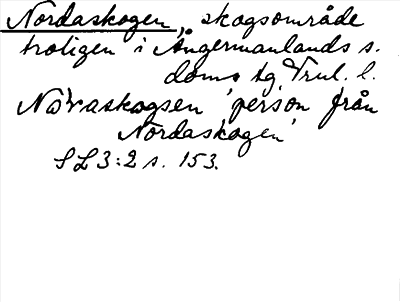 Nordaskogen, skogsområde
troligen i Ångermanlands s.
doms sg. Trul. l.
Nørvaskogsen 'person från
Nordaskogen'
SL 3:2 s. 153.